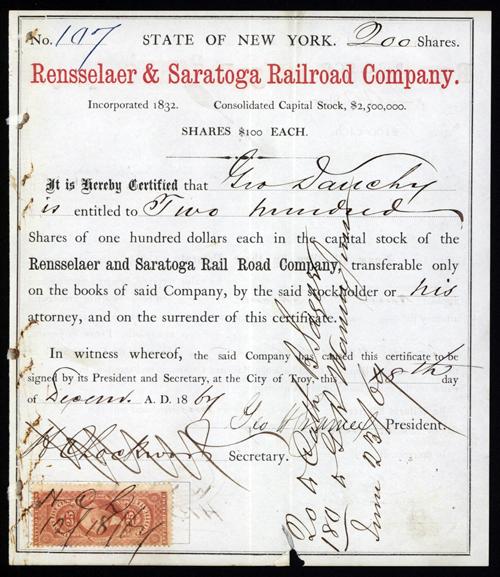 No. 107 STATE OF NEW YORK. 200 Shares.
Rensselaer & Saratoga Railroad Company.
Incorporated 1832. Consolidated Capital Stock, $2,500,000.
SHARES $100 EACH.
It is Hereby Certified that Geo Dauchy
is entitled to Two hundred
Shares of one hundred dollars each in the capital stock of the
Rensselaer and Saratoga Rail Road Company, transferable only
on the books of said Company, by the said stockholder or his
attorney, and on the surrender of this certificate.
In witness whereof, the said Company has caused this certificate to be
signed by its President and Secretary, at the City of Troy, this 18th day
of Decem. A. D. 1867
Geo H President.
Secretary.
20 to
180 to Geo H
June 23/68
H C L
12/18/67
25